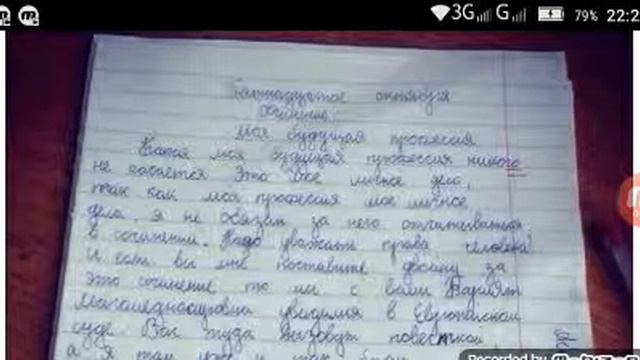 3G G 79% 22:2
октября
Сочинение.
Моя будущая профессия
Какая моя будущая профессия никого
не касается это моё личное дело,
так как моя профессия мое личное
дело. я не обязан за него отчитываться
в сочинении. Надо уважать права человека!
И если вы мне поставите двойку за
это сочинение то мы с вами
увидимся в Европейском
суде. Вас туда вызовут повесткой
а я там уже и так
Recorded by